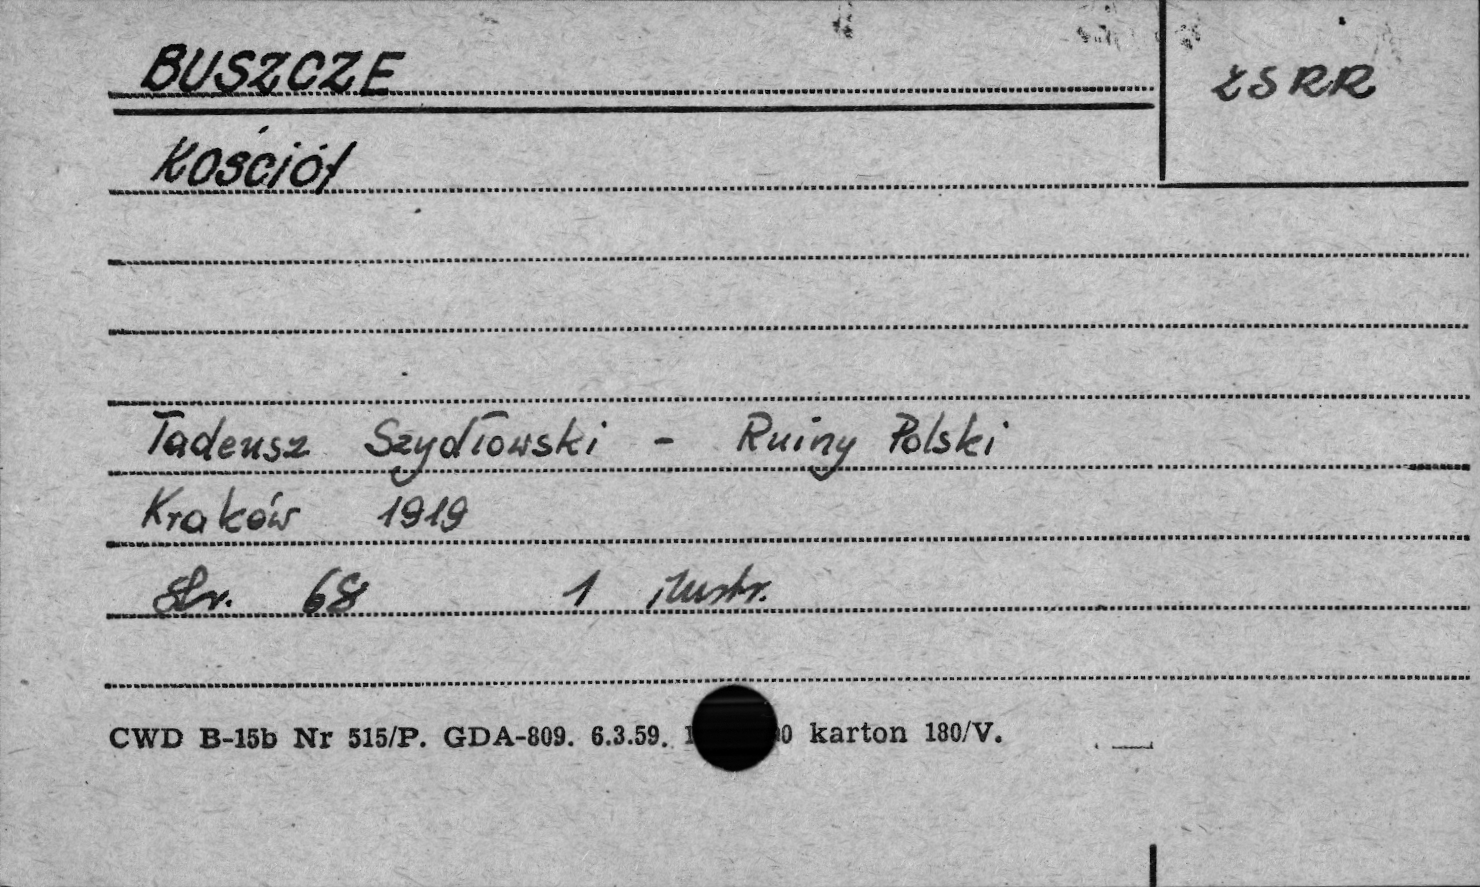 BUSZCZE
ZSRR
KOŚCIÓŁ
Tadeusz Szydłowski - Ruiny Polski
Kraków 1919
Str. 68 1 ilustr.
CWD B-15b Nr 515/P. GDA-809. 6.3.59. karton 180/V.